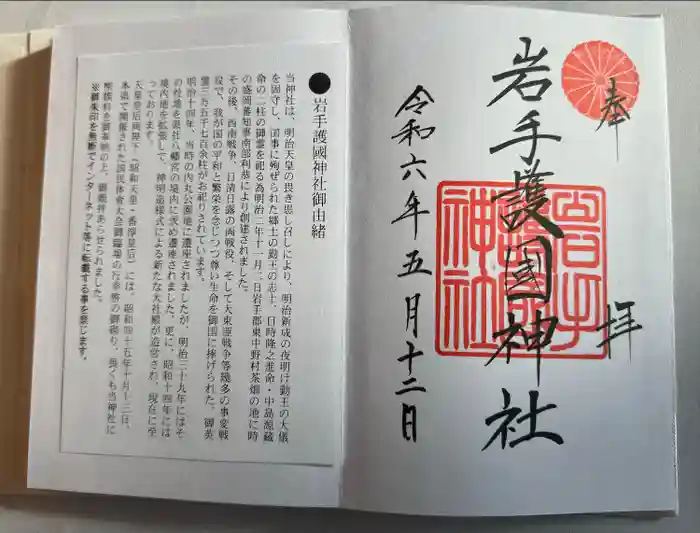 奉拝
岩手護國神社
岩手
護國
神社
令和六年五月十二日
●岩手護國神社御由緒
当神社は、明治天皇の畏き思し召しにより、明治新成の夜明け勤王の大儀
を固守し、国事に殉ぜられた郷土の勤王の志士、目時隆之進命・中島源蔵
命の二柱の御霊を祀る為明治二年十一月二日岩手郡東中野村茶畑の地に時
の盛岡藩知事南部利恭により創建されました。
その後、西南戦争、日清日露の両戦役、そして大東亜戦争等幾多の事変戦
役で、我が国の平和と繁栄を念じつつ尊い生命を御国に捧げられた、御英
霊三万五千七百余柱がお祀りされています。
明治十四年、当時の内丸公園地に遷座されましたが、明治三十九年にはそ
の役場を県社八幡宮の境内に求め遷座されました。更に、昭和十四年には
境内地を拡張して、神明造様式による新たな大社殿が造営され、現在に至
っております。
天皇皇后両陛下（昭和天皇・香淳皇后）には、昭和四十五年十月十三日、
本県で開催された国民体育大会御臨場の行幸啓の御砌り、畏くも当神社に
幣饌料を御奉納の上、御親拝あらせられました。
※御朱印を無断でインターネット等に転載する事を禁じます。